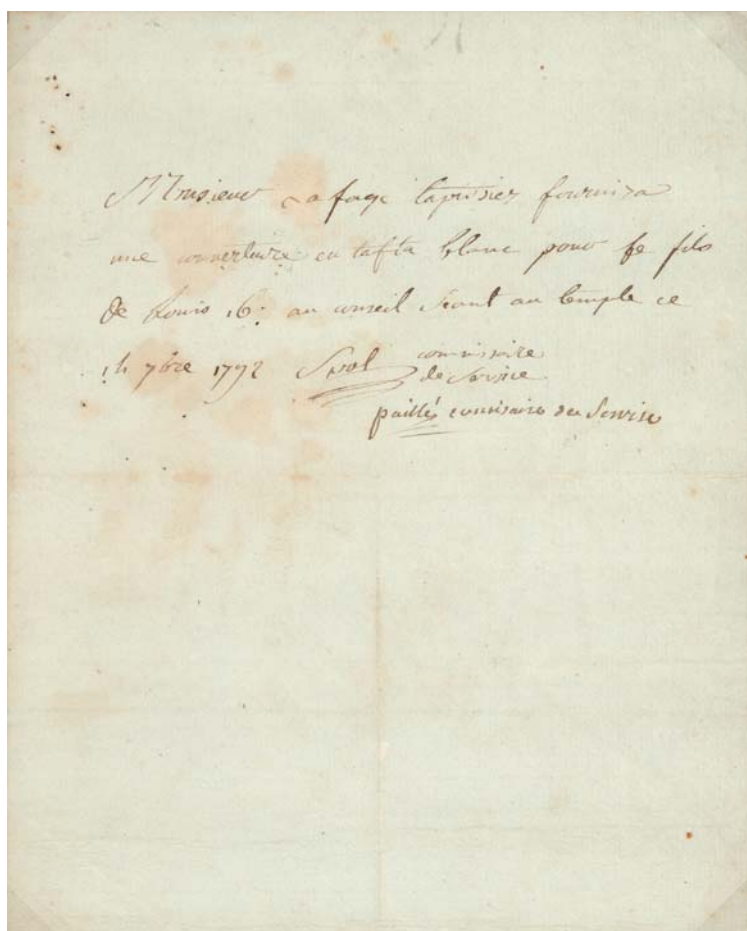 Monsieur Lafage tapissier fournira
une couverture en tafta blanc pour le fils
de Louis 16. au conseil séant au temple ce
14 7bre 1792 commissaire
de Service
paillé commisaire de Service